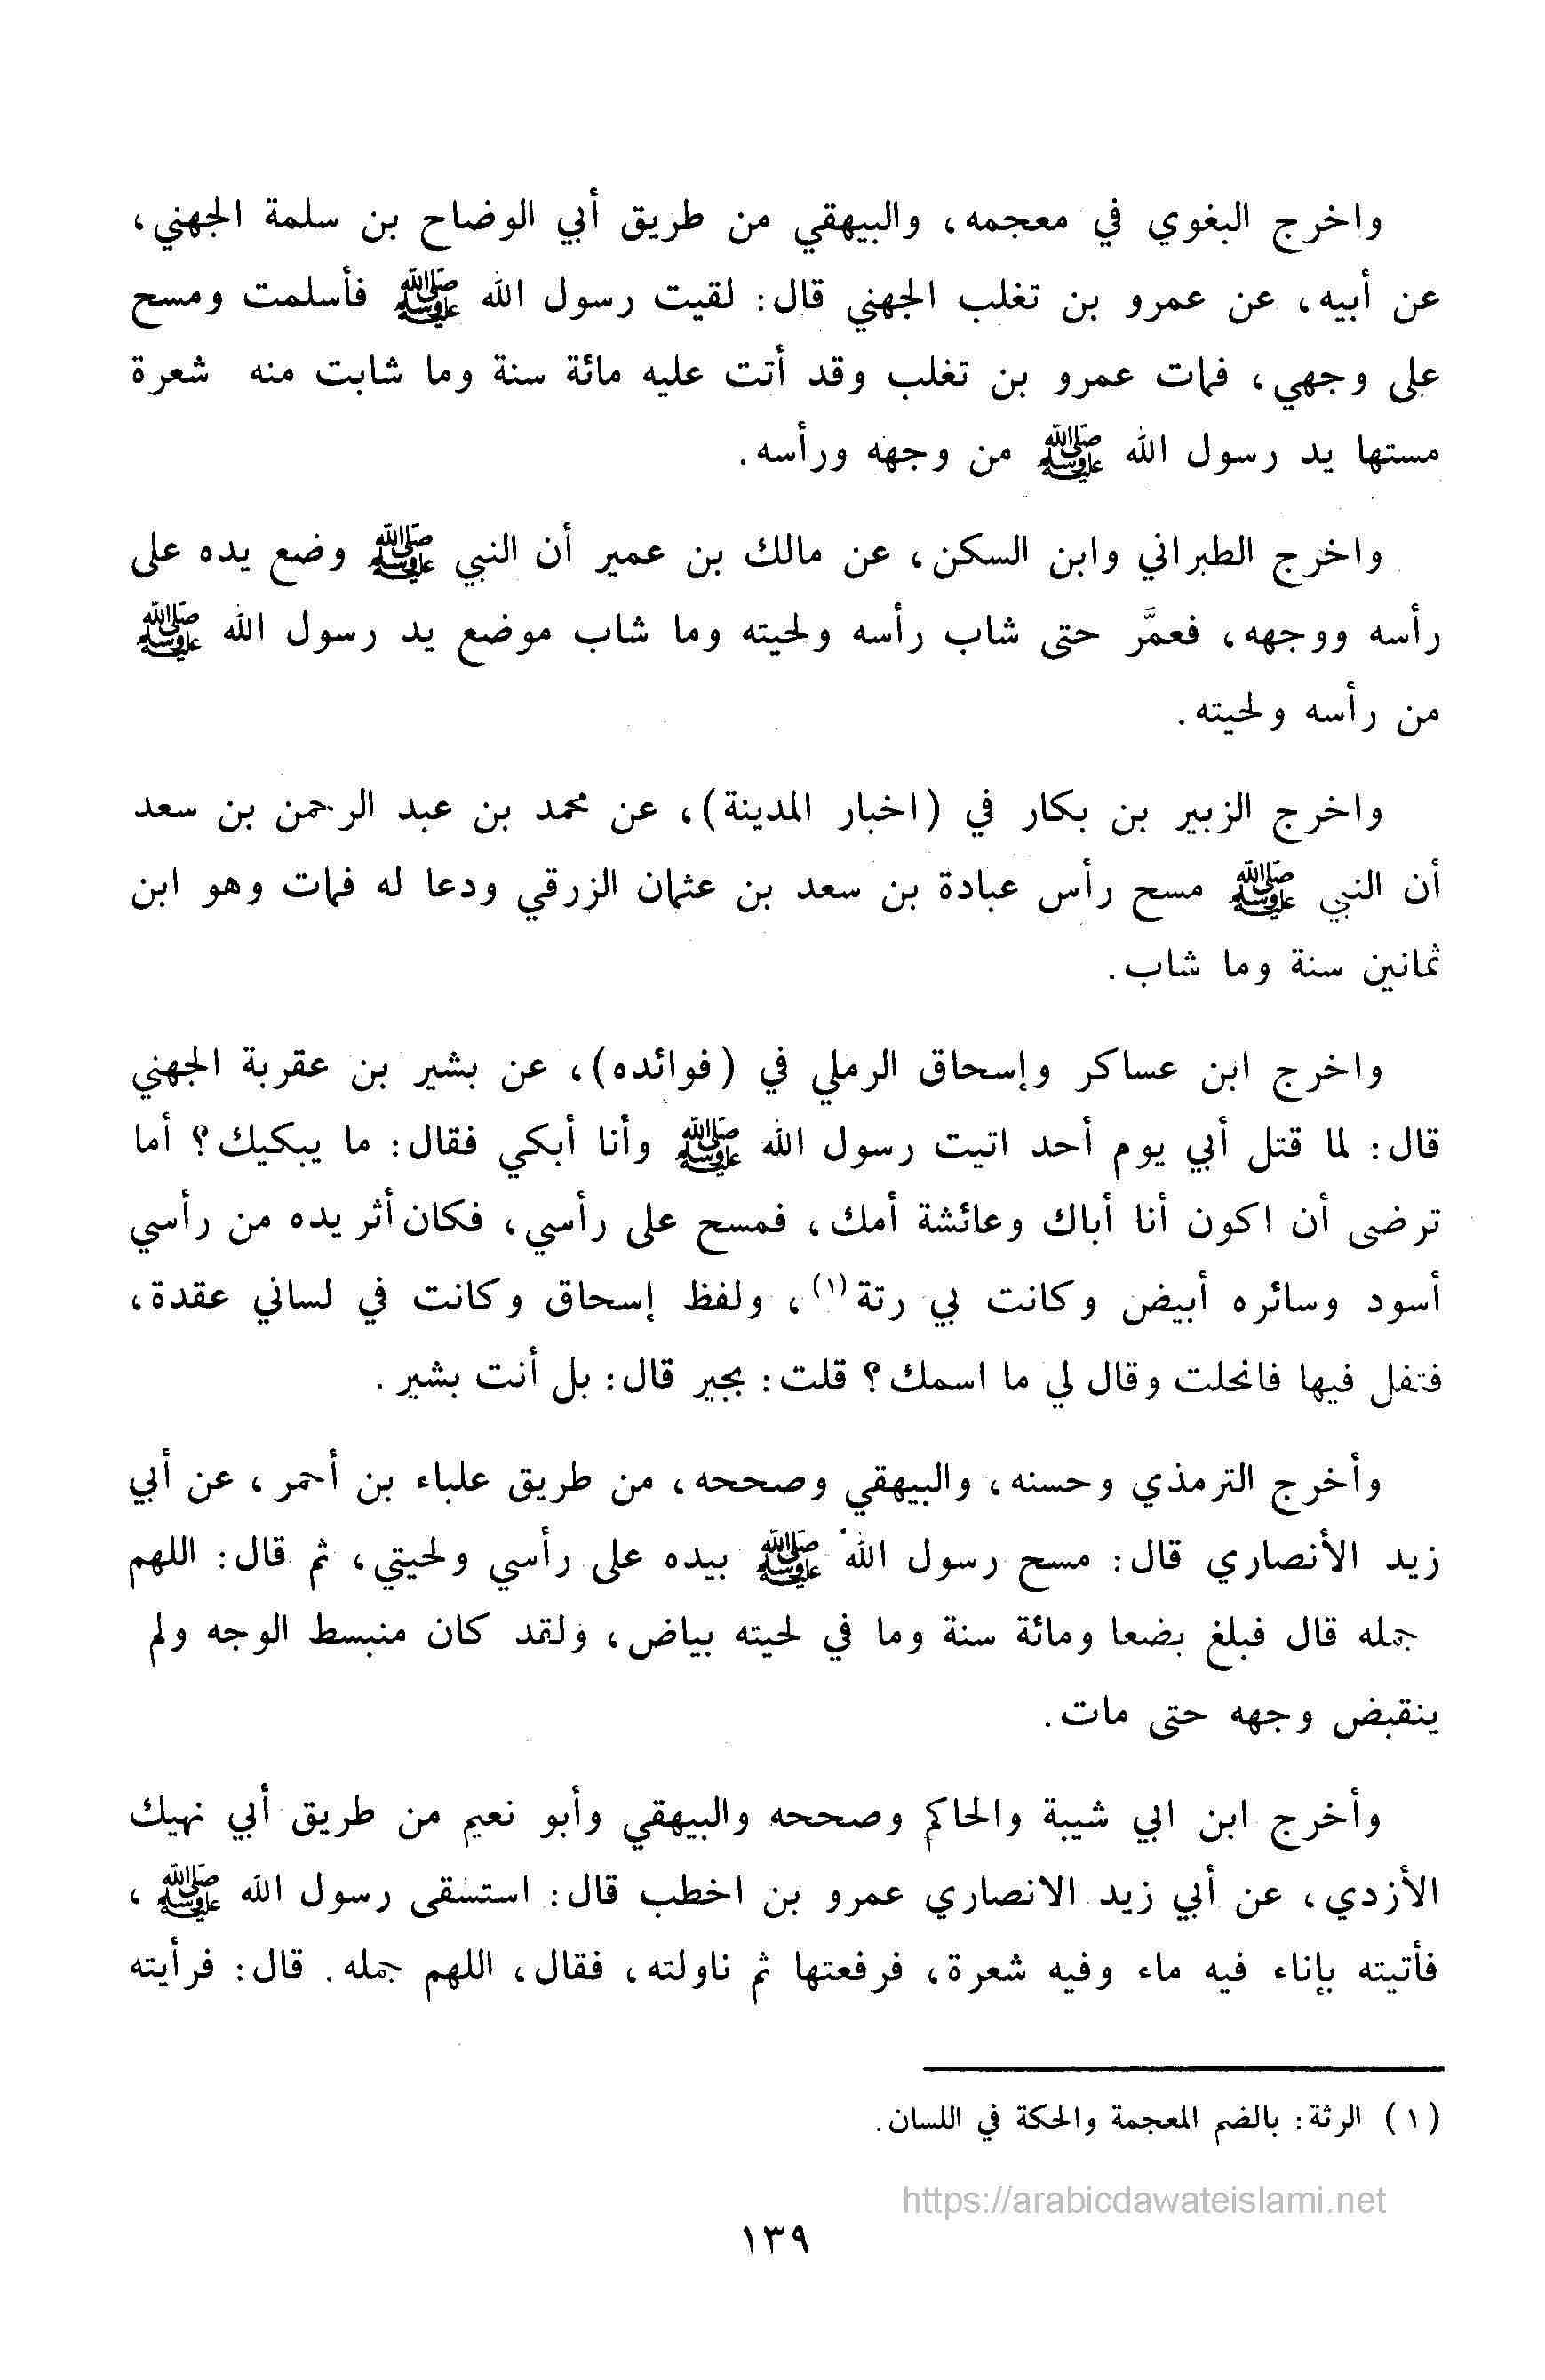 واخرج البغوي في معجمه، والبيهقي من طريق أبي الوضاح بن سلمة الجهني،
عن أبيه، عن عمرو بن تغلب الجهني قال: لقيت رسول الله ﷺ فأسلمت ومسح
على وجهي، فمات عمرو بن تغلب وقد أتت عليه مائة سنة وما شابت منه شعرة
مستها يد رسول الله ﷺ من وجهه ورأسه.
واخرج الطبراني وابن السكن، عن مالك بن عمير أن النبي ﷺ وضع يده على
رأسه ووجهه، فعمَّر حتى شاب رأسه ولحيته وما شاب موضع يد رسول الله ﷺ
من رأسه ولحيته.
واخرج الزبير بن بكار في (اخبار المدينة)، عن محمد بن عبد الرحمن بن سعد
أن النبي ﷺ مسح رأس عبادة بن سعد بن عثمان الزرقي ودعا له فمات وهو ابن
ثمانين سنة وما شاب.
واخرج ابن عساكر وإسحاق الرملي في (فوائده)، عن بشير بن عقربة الجهني
قال: لما قتل أبي يوم أحد اتيت رسول الله ﷺ وأنا أبكي فقال: ما يبكيك؟ أما
ترضى أن اكون أنا أباك وعائشة أمك، فمسح على رأسي، فكان أثر يده من رأسي
أسود وسائره أبيض وكانت بي رتة(١)، ولفظ إسحاق وكانت في لساني عقدة،
فتفل فيها فانحلت وقال لي ما اسمك؟ قلت: بجير قال: بل أنت بشير.
وأخرج الترمذي وحسنه، والبيهقي وصححه، من طريق علباء بن أحمر، عن أبي
زيد الأنصاري قال: مسح رسول الله ﷺ بيده على رأسي ولحيتي، ثم قال: اللهم
جمله قال فبلغ بضعا ومائة سنة وما في لحيته بياض، ولقد كان منبسط الوجه ولم
ينقبض وجهه حتى مات.
وأخرج ابن ابي شيبة والحاكم وصححه والبيهقي وأبو نعيم من طريق أبي نهيك
الأزدي، عن أبي زيد الانصاري عمرو بن اخطب قال: استسقى رسول الله ﷺ،
فأتيته بإناء فيه ماء وفيه شعرة، فرفعتها ثم ناولته، فقال، اللهم جمله. قال: فرأيته
(١) الرثة: بالضم المعجمة والحكة في اللسان.
https://arabicdawateislami.net
١٣٩